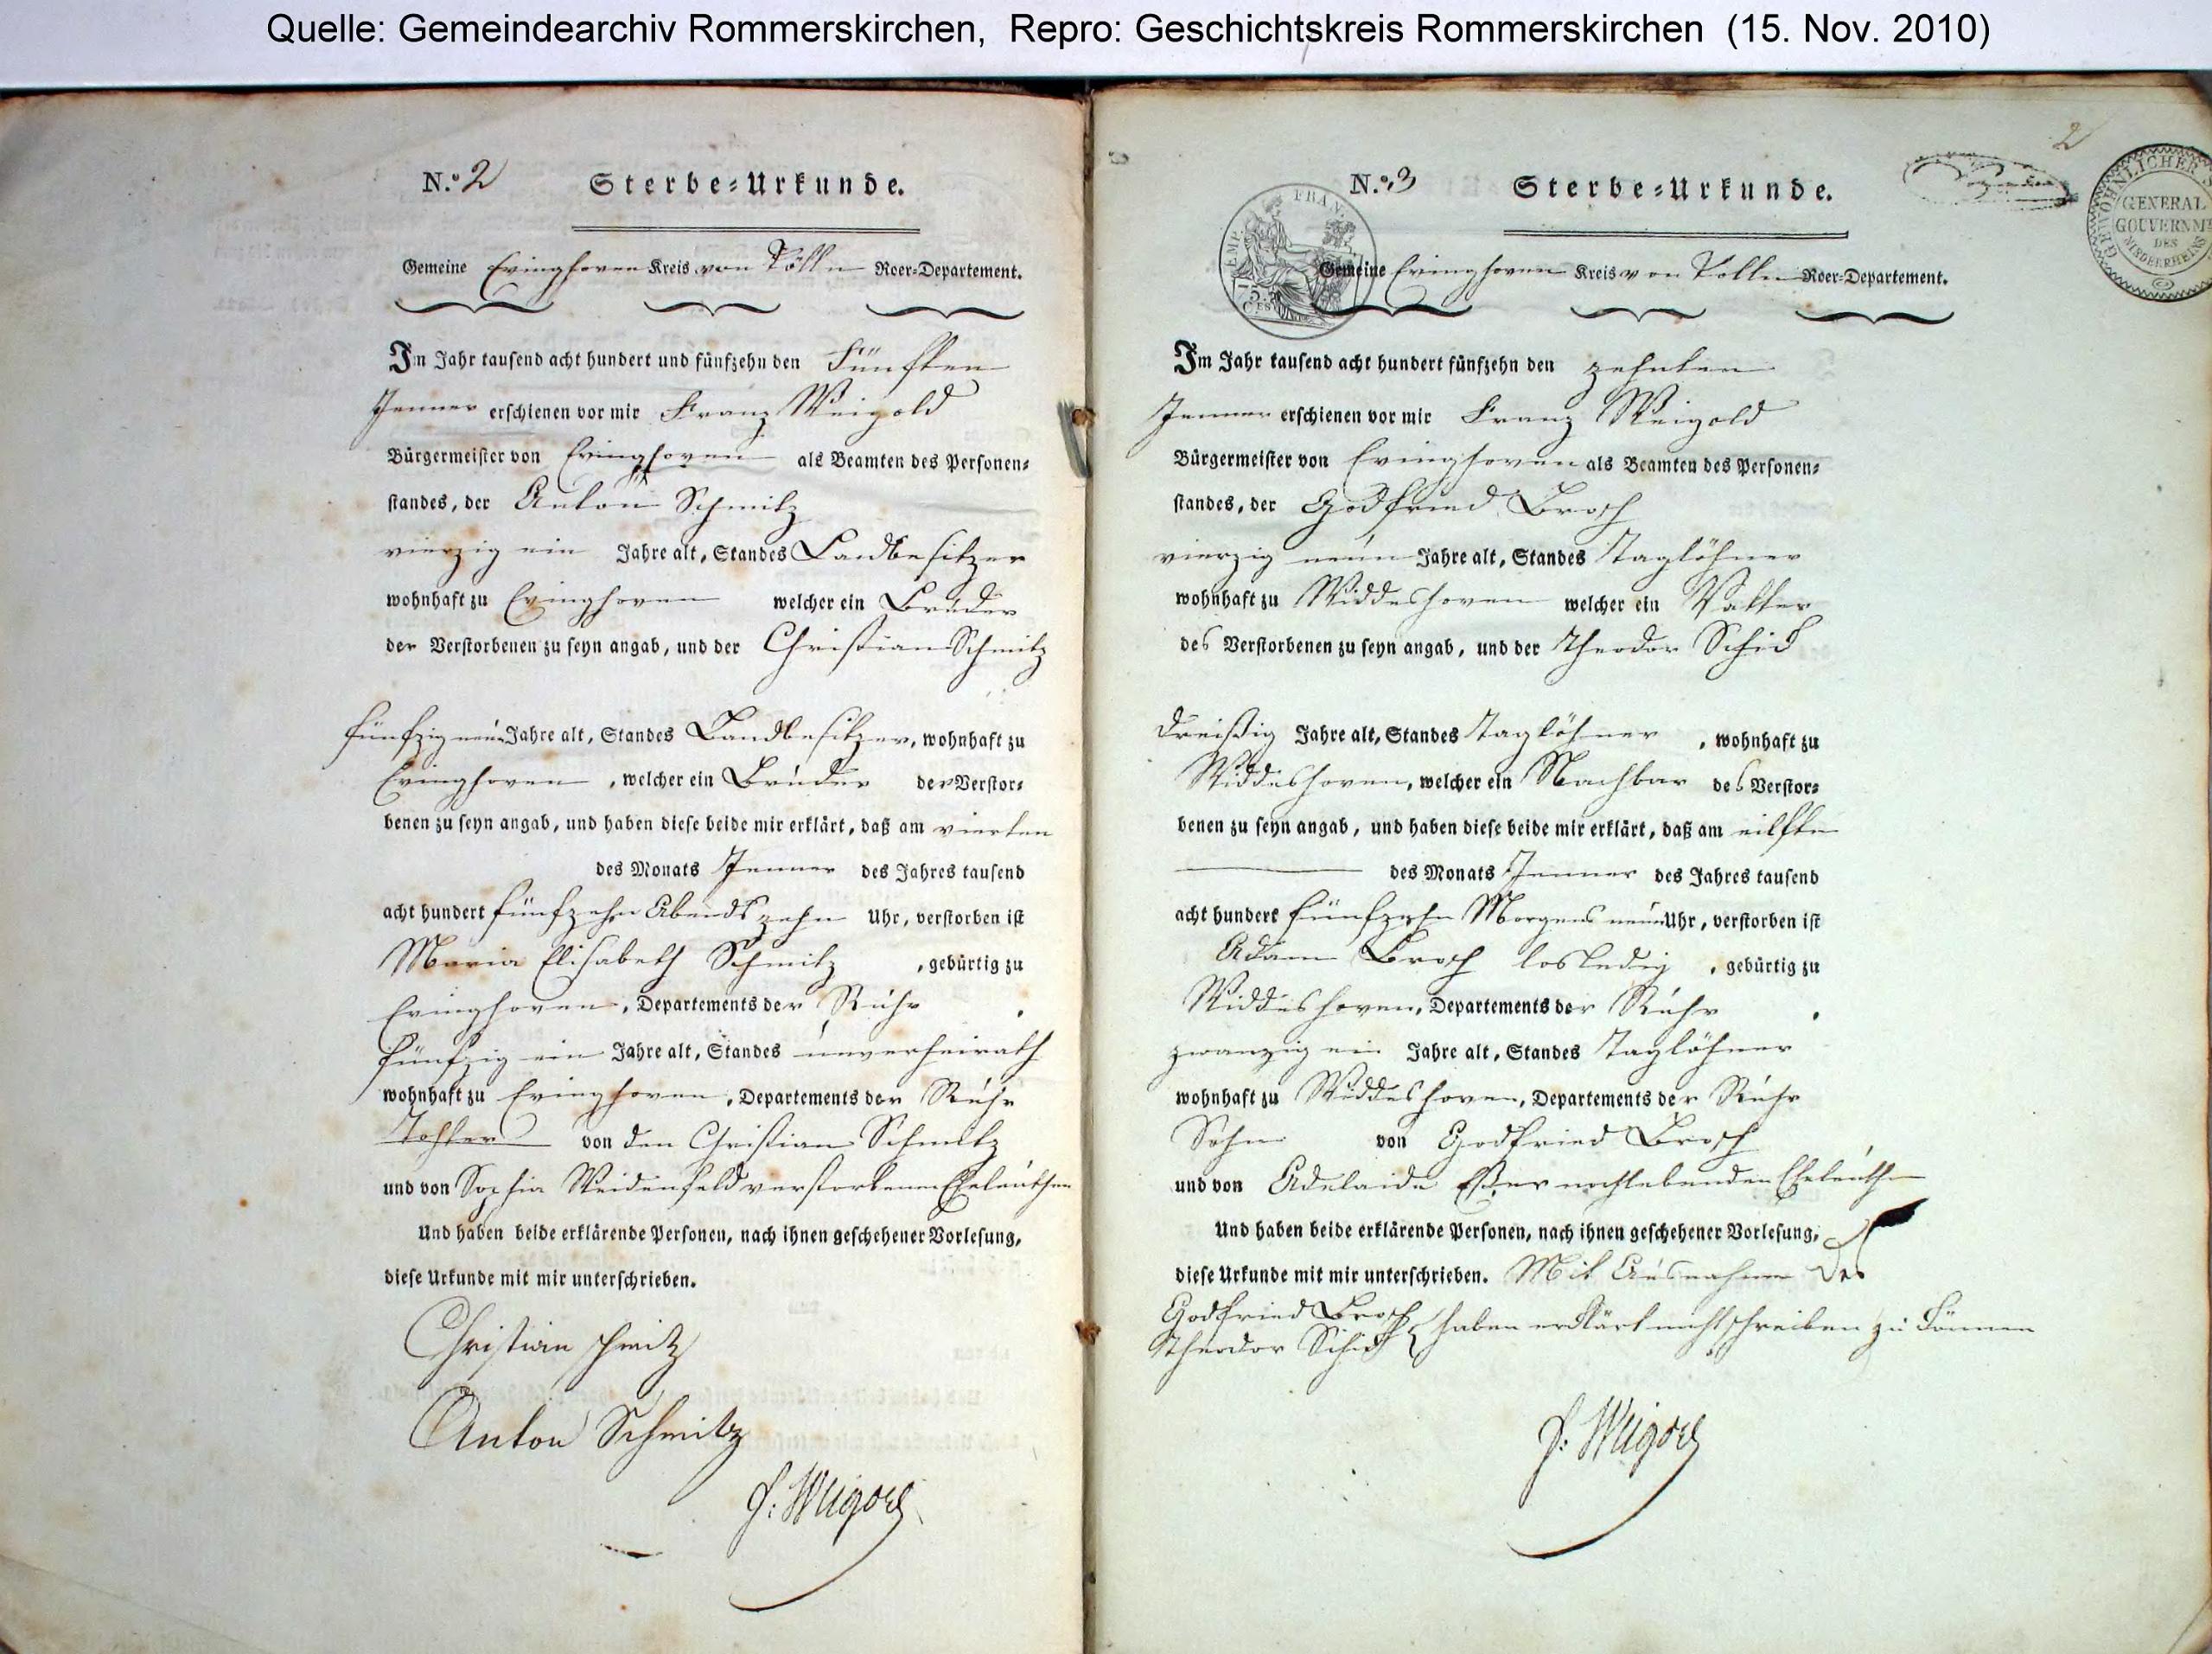 Quelle: Gemeindearchiv Rommerskirchen, Repro: Geschichtskreis Rommerskirchen (15. Nov. 2010)
N.º 2 Sterbe-Urkunde.
Gemeine Evinghoven Kreis von Cölln Roer-Departement.
Im Jahr tausend acht hundert und fünfzehn den Fünften
Jenner erschienen vor mir Franz Weigold
Bürgermeister von Evinghoven als Beamten des Personen-
standes, der Anton Schmitz
vierzig ein Jahre alt, Standes Landbesitzer
wohnhaft zu Evinghoven welcher ein Bruder
der Verstorbenen zu seyn angab, und der Christian Schmitz
fünfzig neun Jahre alt, Standes Landbesitzer, wohnhaft zu
Evinghoven, welcher ein Bruder der Verstor-
benen zu seyn angab, und haben diese beide mir erklärt, daß am vierten
des Monats Jenner des Jahres tausend
acht hundert fünfzehn Abends zehn Uhr, verstorben ist
Maria Elisabeth Schmitz, gebürtig zu
Evinghoven, Departements der Ruhr.
fünfzig ein Jahre alt, Standes unverheirath
wohnhaft zu Evinghoven, Departements der Ruhr
Tochter von den Christian Schmitz
und von Sophia Weidenfeld verstorbenen Eheleuthen
Und haben beide erklärende Personen, nach ihnen geschehener Vorlesung,
diese Urkunde mit mir unterschrieben.
Christian schmitz
Anton Schmitz
f: Weigold
2
N.º 3 Sterbe-Urkunde.
EMP. FRAN.
GEWÖHNLICHER
GENERAL
GOUVERNMT
DES
NIEDERRHEINS
Gemeine Evinghoven Kreis von Cölln Roer-Departement.
Im Jahr tausend acht hundert fünfzehn den zehnten
Jenner erschienen vor mir Franz Weigold
Bürgermeister von Evinghoven als Beamten des Personen-
standes, der Godfried Brosch
vierzig neun Jahre alt, Standes Taglöhner
wohnhaft zu Widdeshoven welcher ein Vatter
des Verstorbenen zu seyn angab, und der Theodor Schick
dreißig Jahre alt, Standes Taglöhner, wohnhaft zu
Widdeshoven, welcher ein Nachbar des Verstor-
benen zu seyn angab, und haben diese beide mir erklärt, daß am eilften
des Monats Jenner des Jahres tausend
acht hundert fünfzehn Morgens neun Uhr, verstorben ist
Adam Brosch losledig, gebürtig zu
Widdeshoven, Departements der Ruhr.
zwanzig ein Jahre alt, Standes Taglöhner
wohnhaft zu Widdeshoven, Departements der Ruhr
Sohn von Godfried Brosch
und von Adelaide Eßer nochlebenden Eheleuthen
Und haben beide erklärende Personen, nach ihnen geschehener Vorlesung,
diese Urkunde mit mir unterschrieben. Mit Ausnahme des
Godfried Brosch
Theodor Schick haben erklärt nicht schreiben zu können
f: Weigold